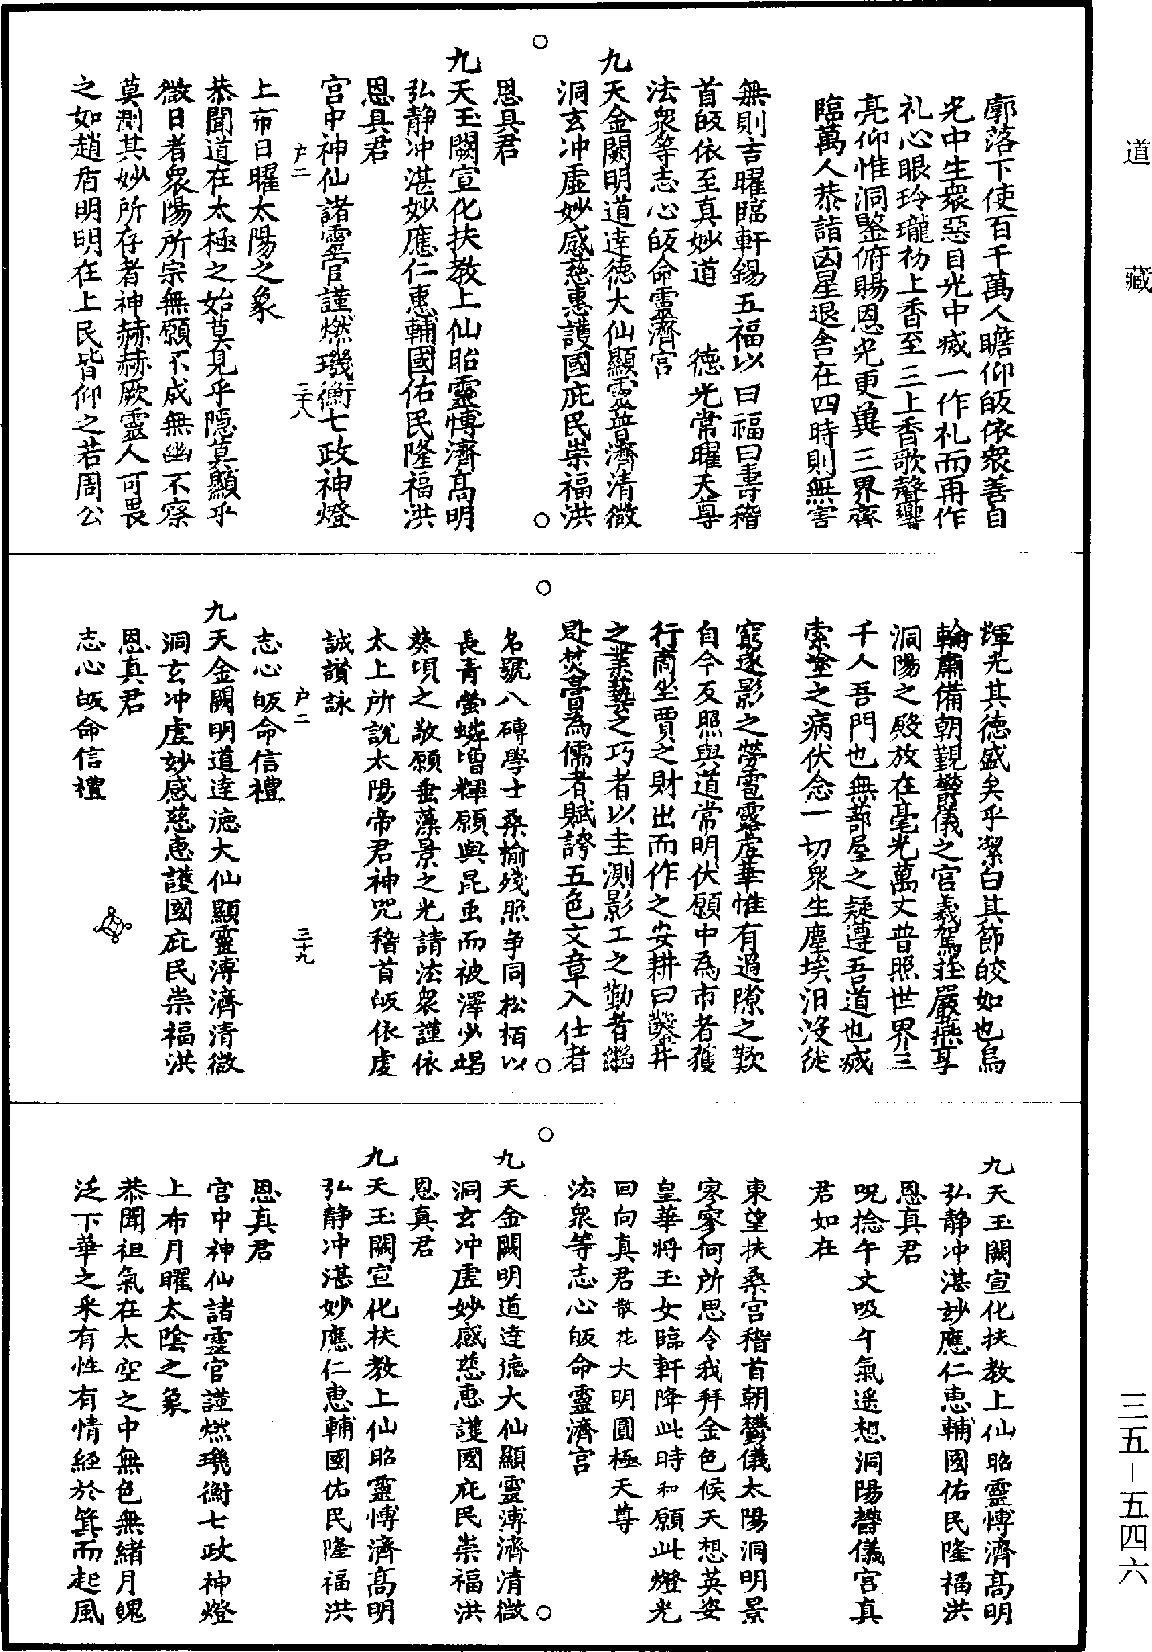 道藏
廓落下使百千萬人瞻仰皈依衆善自
光中生衆惡目光中滅一作礼而再作
礼心眼玲瓏初上香至三上香歌聲嚮
亮仰惟洞鑒俯賜恩光更兾三界齊
臨萬人恭詣凶星退舍在四時則無害
無則吉曜臨軒錫五福以曰福曰壽稽
首皈依至真妙道 德光常曜天尊
法衆等志心皈命靈濟宮
九天金闕明道達德大仙顯靈普濟清微
洞玄冲虛妙感慈惠護國庇民崇福洪
恩真君
九天玉闕宣化扶教上仙昭靈博濟高明
弘静冲湛妙應仁惠輔國佑民隆福洪
恩真君
宮中神仙諸靈官謹燃璣衡七政神燈
户二 三十八
上布日曜太陽之象
恭聞道在太極之始莫見乎隱莫顯乎
微日者衆陽所宗無願不成無幽不察
莫測其妙所存者神赫赫厥靈人可畏
之如趙盾明明在上民皆仰之若周公
輝光其德盛矣乎潔白其節皎如也烏
輪肅備朝觀鬱儀之宮羲駕莊嚴燕享
洞陽之殿放在毫光萬丈普照世界三
千人吾門也無蔀屋之疑遵吾道也滅
索塗之病伏念一切衆生塵埃汨没徒
窮逐影之勞雹露虛華惟有過隙之歎
自今反照與道常明伏願中為市者獲
行商坐賈之財出而作之安耕田鑿井
之業藝之巧者以圭測影工之勤者繼
晷焚膏為儒者賦誇五色文章入仕者
名號八磚學士桑榆殘照争同松栢以
長青螢燐增輝願與昆虫而被澤少竭
葵頃之敬願垂藻景之光請法衆謹依
太上所説太陽帝君神咒稽首皈依虔
誠讚詠
户二 三十九
志心皈命信禮
九天金闕明道達德大仙顯靈溥濟清微
洞玄冲虛妙感慈惠護國庇民崇福洪
恩真君
志心皈命信禮
九天玉闕宣化扶教上仙昭靈博濟高明
弘静冲湛妙應仁惠輔國佑民隆福洪
恩真君
呪捻午文吸午氣遥想洞陽鬱儀宮真
君如在
東望扶桑宮稽首朝鬱儀太陽洞明景
寥寥何所思今我拜金色候天想英姿
皇華將玉女臨軒降此時和願此燈光
回向真君散花大明圓極天尊
法衆等志心皈命靈濟宮
九天金闕明道達德大仙顯靈溥濟清微
洞玄冲虛妙感慈惠護國庇民崇福洪
恩真君
九天玉闕宣化扶教上仙昭靈博濟高明
弘静冲湛妙應仁惠輔國佑民隆福洪
恩真君
宮中神仙諸靈官謹燃璣衡七政神燈
上布月曜太陰之象
恭聞祖氣在太空之中無色無緒月魄
泛下華之采有性有情經於箕而起風
三五－五四六